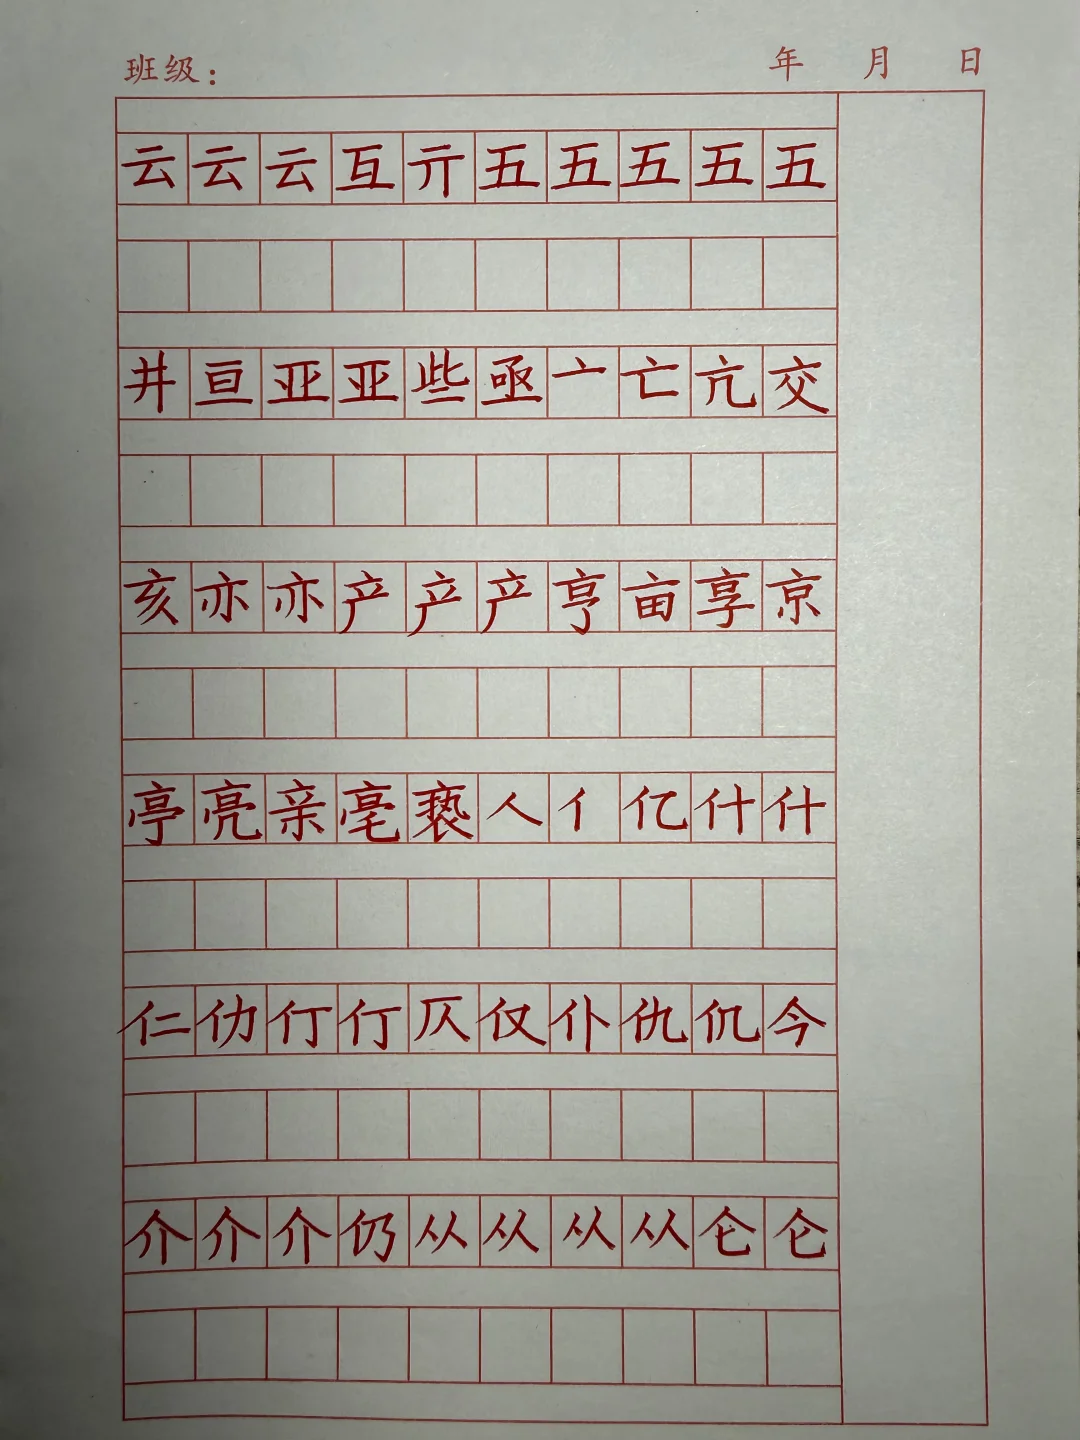 班级： 年 月 日
云云云互亍五五五五五
井亘亚亚些亟亠亡亢交
亥亦亦产产产亨亩享京
亭亮亲亳亵人亻亿什什
仁仂仃仃仄仅仆仇仉今
介介介仍从从从从仑仑